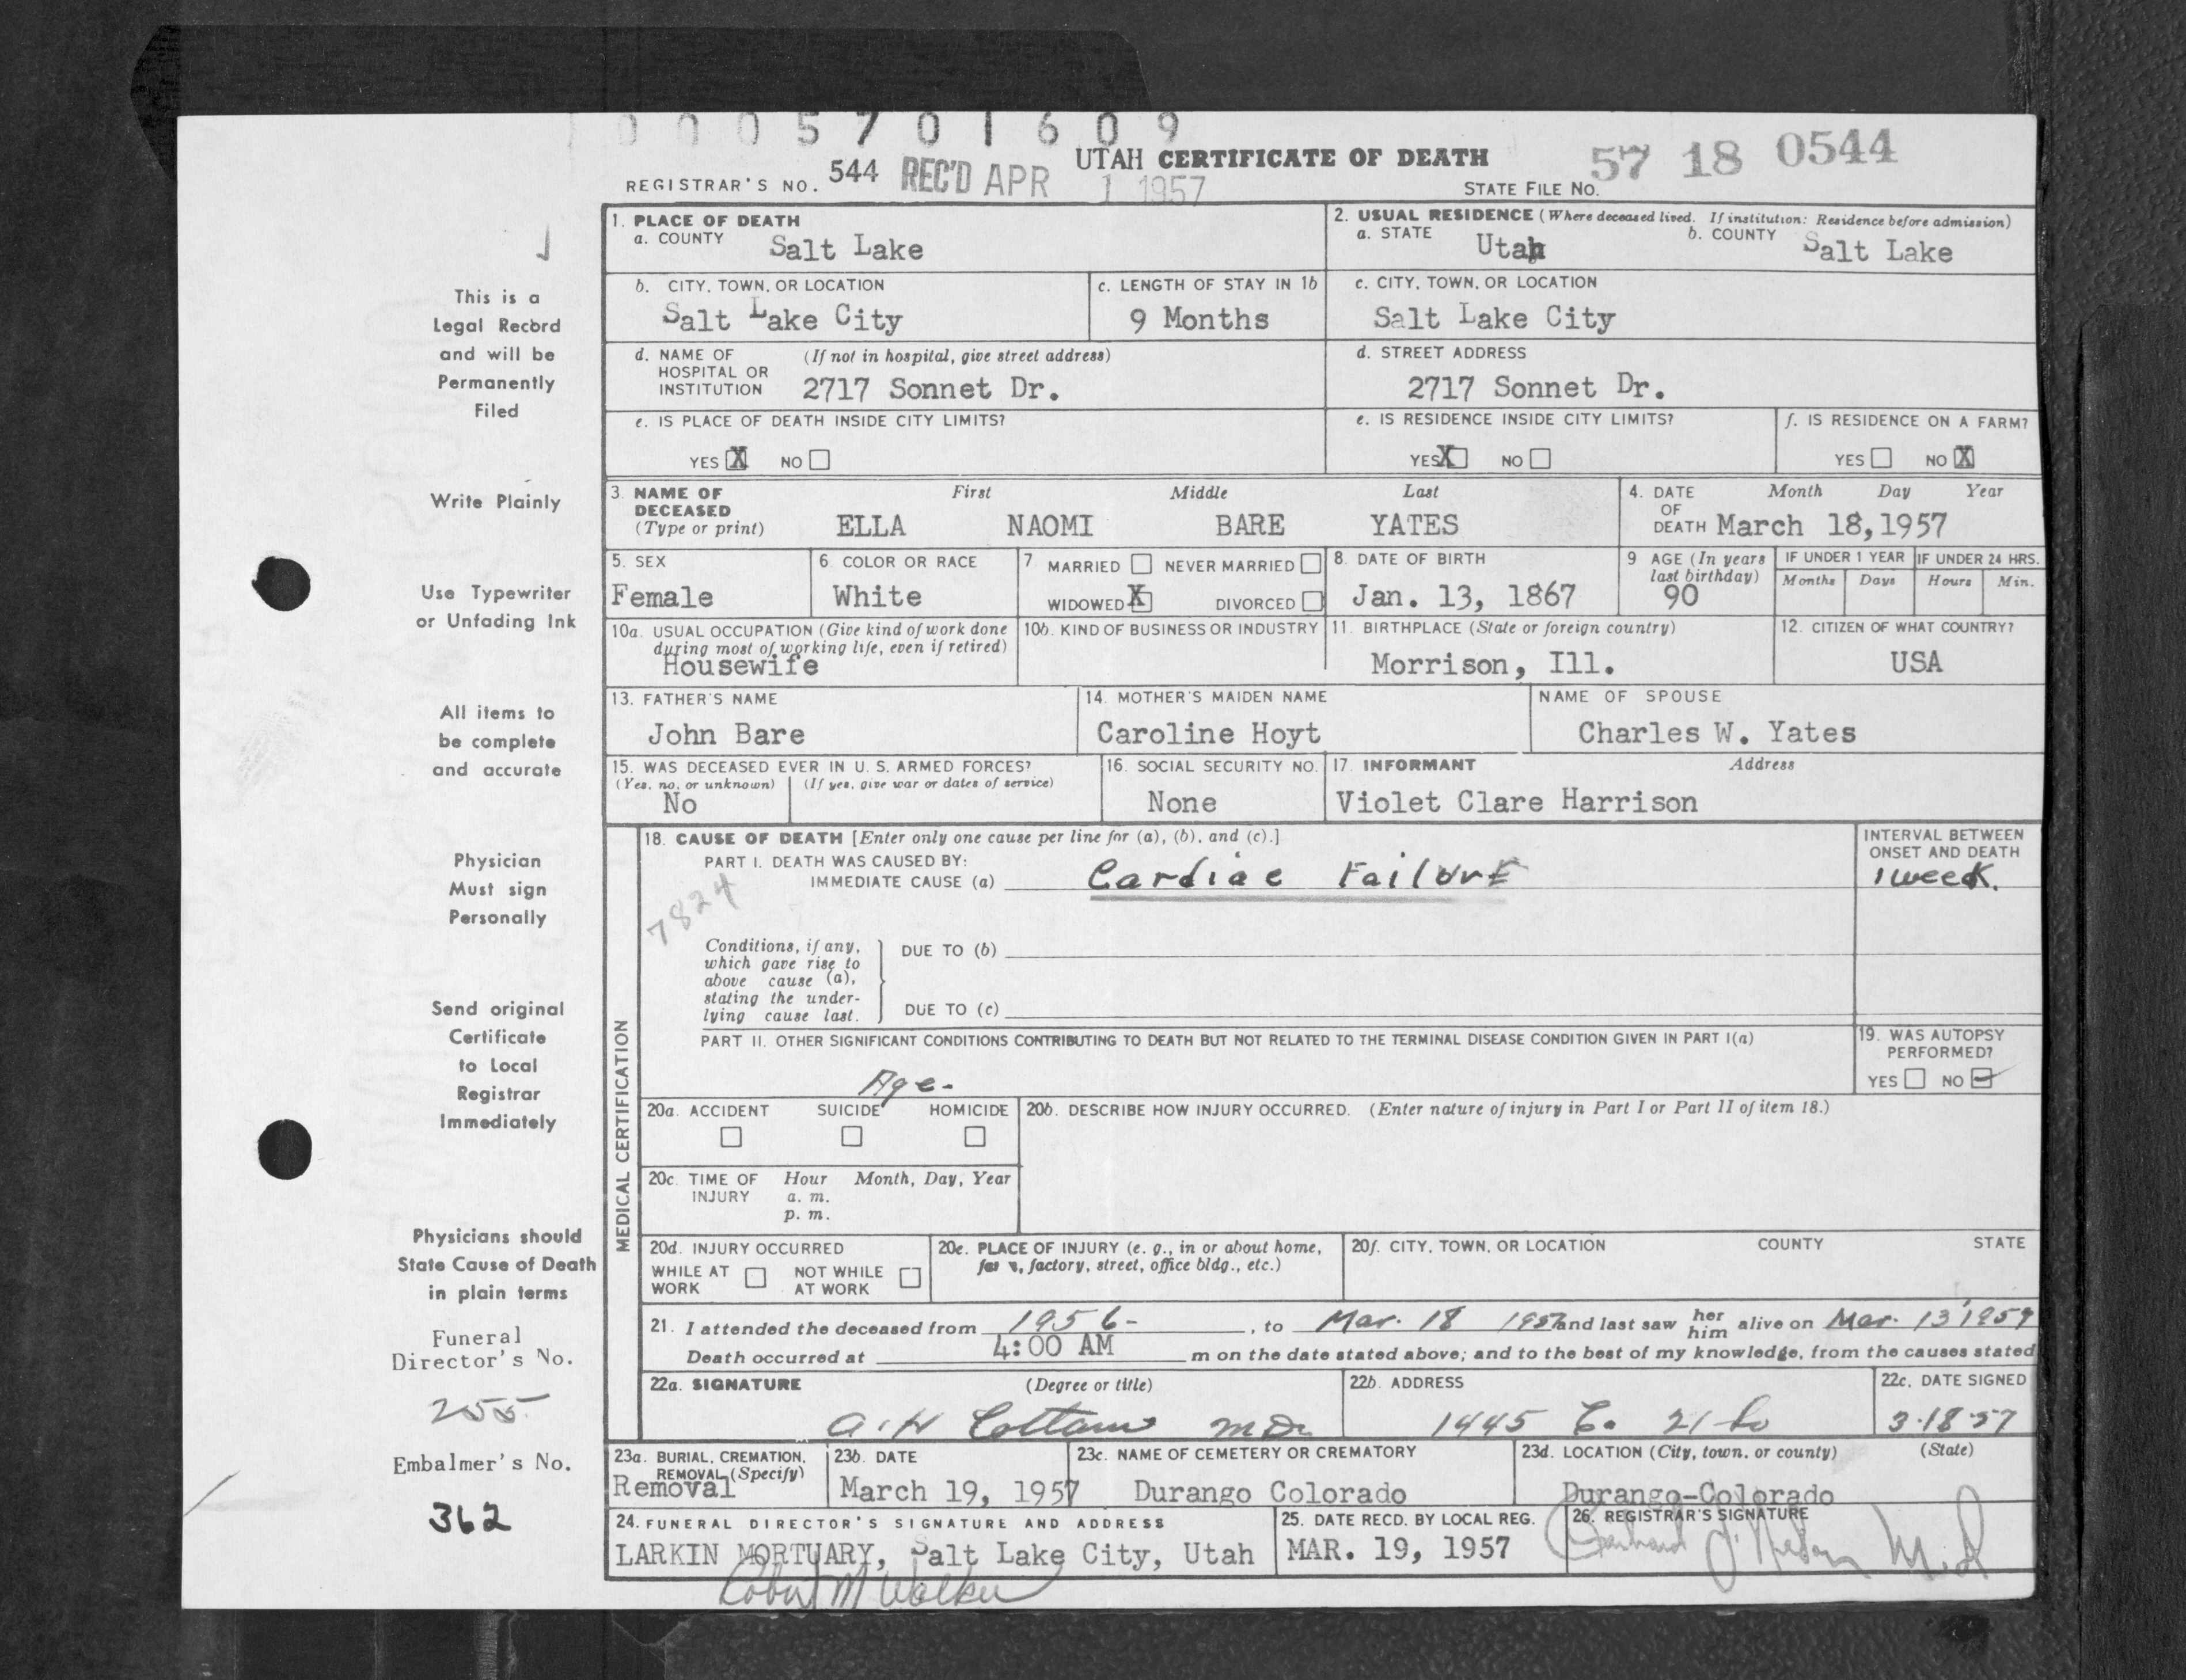 0005701609
UTAH CERTIFICATE OF DEATH
REGISTRAR'S NO. 544 REC'D APR 1 1957
STATE FILE NO. 57 18 0544
This is a
Legal Record
and will be
Permanently
Filed
Write Plainly
Use Typewriter
or Unfading Ink
All items to
be complete
and accurate
Physician
Must sign
Personally
Send original
Certificate
to Local
Registrar
Immediately
Physicians should
State Cause of Death
in plain terms
Funeral
Director's No.
255
Embalmer's No.
362
1. PLACE OF DEATH
a. COUNTY Salt Lake
2. USUAL RESIDENCE (Where deceased lived. If institution: Residence before admission)
a. STATE Utah b. COUNTY Salt Lake
b. CITY, TOWN, OR LOCATION
Salt Lake City
c. LENGTH OF STAY IN 1b
9 Months
c. CITY, TOWN, OR LOCATION
Salt Lake City
d. NAME OF (If not in hospital, give street address)
HOSPITAL OR
INSTITUTION 2717 Sonnet Dr.
d. STREET ADDRESS
2717 Sonnet Dr.
e. IS PLACE OF DEATH INSIDE CITY LIMITS?
YES X NO
e. IS RESIDENCE INSIDE CITY LIMITS?
YES X NO
f. IS RESIDENCE ON A FARM?
YES NO X
3. NAME OF First Middle Last
DECEASED
(Type or print) ELLA NAOMI BARE YATES
4. DATE Month Day Year
OF
DEATH March 18, 1957
5. SEX
Female
6. COLOR OR RACE
White
7. MARRIED NEVER MARRIED
WIDOWED X DIVORCED
8. DATE OF BIRTH
Jan. 13, 1867
9 AGE (In years
last birthday)
90
IF UNDER 1 YEAR
Months Days
IF UNDER 24 HRS.
Hours Min.
10a. USUAL OCCUPATION (Give kind of work done
during most of working life, even if retired)
Housewife
10b. KIND OF BUSINESS OR INDUSTRY
11. BIRTHPLACE (State or foreign country)
Morrison, Ill.
12. CITIZEN OF WHAT COUNTRY?
USA
13. FATHER'S NAME
John Bare
14. MOTHER'S MAIDEN NAME
Caroline Hoyt
NAME OF SPOUSE
Charles W. Yates
15. WAS DECEASED EVER IN U. S. ARMED FORCES?
(Yes, no, or unknown) (If yes, give war or dates of service)
No
16. SOCIAL SECURITY NO.
None
17. INFORMANT Address
Violet Clare Harrison
MEDICAL CERTIFICATION
18. CAUSE OF DEATH [Enter only one cause per line for (a), (b), and (c).]
PART I. DEATH WAS CAUSED BY:
IMMEDIATE CAUSE (a) Cardiac Failure
INTERVAL BETWEEN
ONSET AND DEATH
1 week.
7824
Conditions, if any,
which gave rise to
above cause (a),
stating the under-
lying cause last.
DUE TO (b)
DUE TO (c)
PART II. OTHER SIGNIFICANT CONDITIONS CONTRIBUTING TO DEATH BUT NOT RELATED TO THE TERMINAL DISEASE CONDITION GIVEN IN PART I(a)
Age-
19. WAS AUTOPSY
PERFORMED?
YES NO
20a. ACCIDENT SUICIDE HOMICIDE
20b. DESCRIBE HOW INJURY OCCURRED. (Enter nature of injury in Part I or Part II of item 18.)
20c. TIME OF Hour Month, Day, Year
INJURY a. m.
p. m.
20d. INJURY OCCURRED
WHILE AT NOT WHILE
WORK AT WORK
20e. PLACE OF INJURY (e. g., in or about home,
factory, street, office bldg., etc.)
20f. CITY, TOWN, OR LOCATION COUNTY STATE
21. I attended the deceased from 1956-, to Mar. 18 1957 and last saw her him alive on Mar. 13 1957
Death occurred at 4:00 AM m on the date stated above; and to the best of my knowledge, from the causes stated
22a. SIGNATURE (Degree or title)
A. H Cottam M.D.
22b. ADDRESS
1445 E. 21 So
22c. DATE SIGNED
3-18-57
23a. BURIAL, CREMATION,
REMOVAL (Specify)
Removal
23b. DATE
March 19, 1957
23c. NAME OF CEMETERY OR CREMATORY
Durango Colorado
23d. LOCATION (City, town, or county) (State)
Durango-Colorado
24. FUNERAL DIRECTOR'S SIGNATURE AND ADDRESS
LARKIN MORTUARY, Salt Lake City, Utah
Robert M Walker
25. DATE RECD. BY LOCAL REG.
MAR. 19, 1957
26. REGISTRAR'S SIGNATURE
M.D